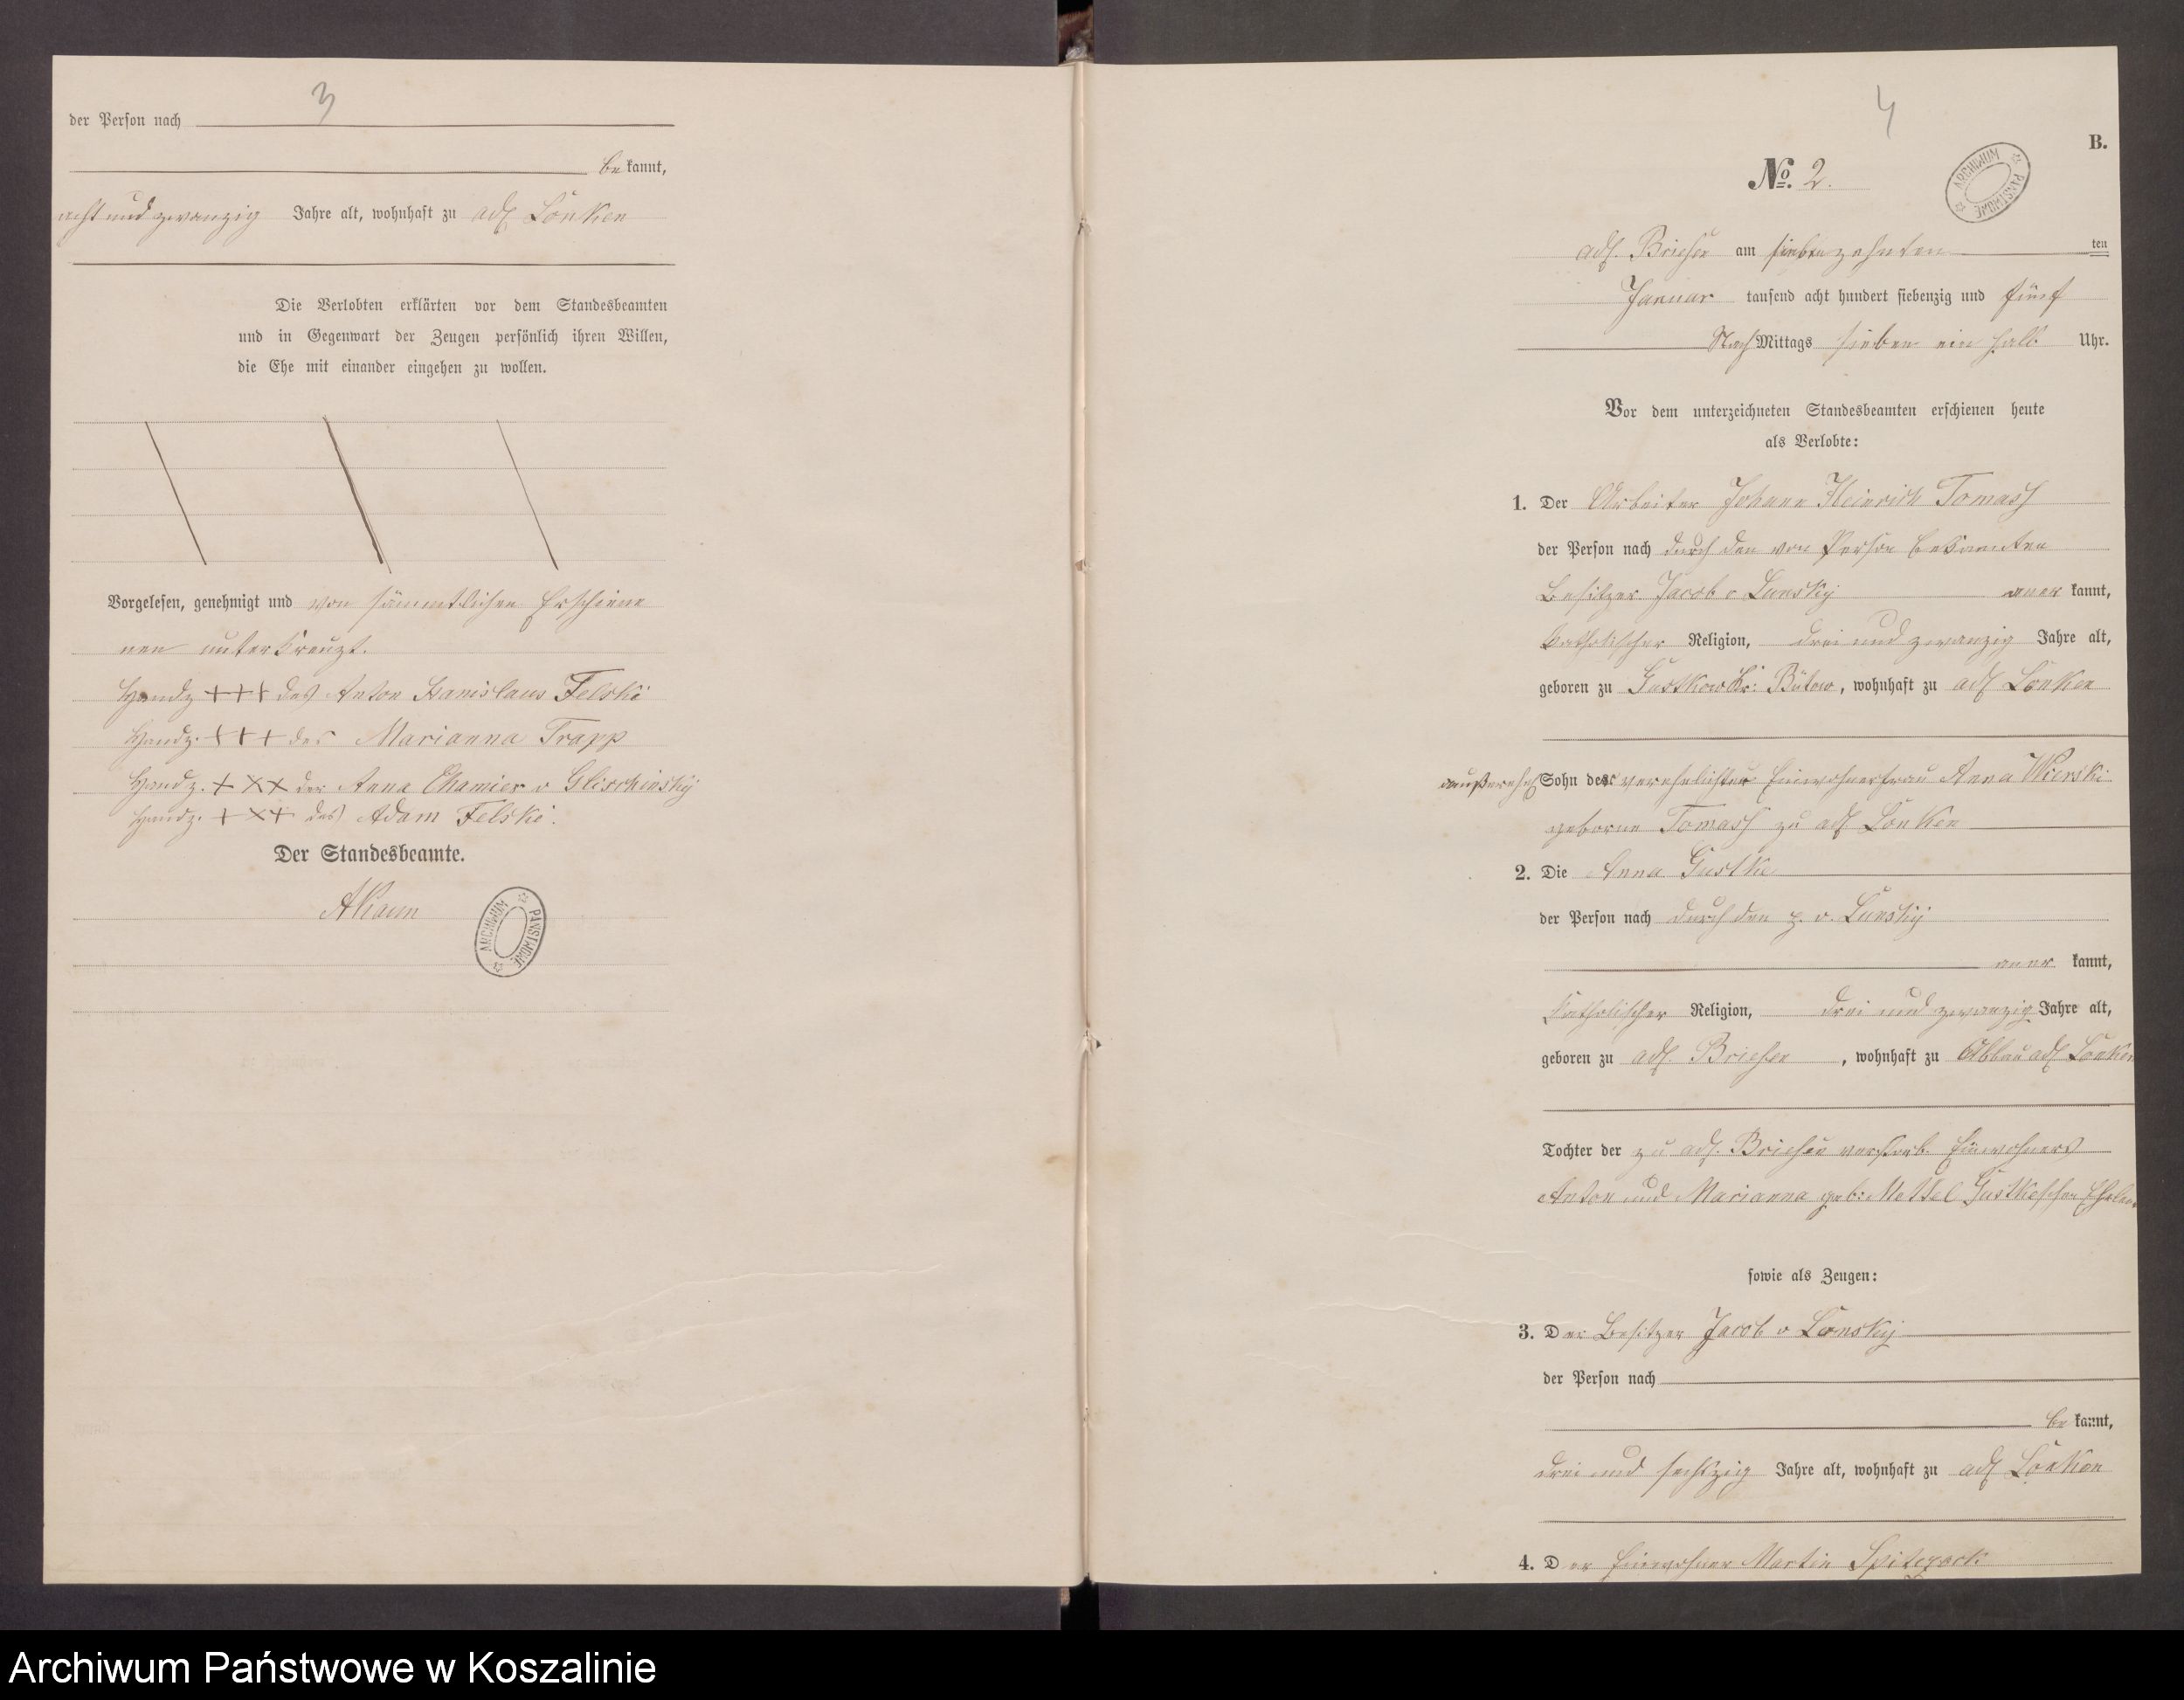 3
der Person nach
bekannt,
acht und zwanzig Jahre alt, wohnhaft zu adl Lonken
Die Verlobten erklärten vor dem Standesbeamten
und in Gegenwart der Zeugen persönlich ihren Willen,
die Ehe mit einander eingehen zu wollen.
Vorgelesen, genehmigt und von sämmtlichen Erschiene
nen unterkreuzt.
Handz +++ des Anton Stanislaus Felski
Handz. +++ der Marianna Trapp
Handz. +++ der Anna Chamier v Glischinsky
Handz. +++ des Adam Felski.
Der Standesbeamte.
ARCHIWUM PAŃSTWOWE
4
B.
No. 2.
ARCHIWUM PAŃSTWOWE
adl. Briesen am siebenzehnten ten
Januar tausend acht hundert siebenzig und fünf
Nach Mittags sieben ein halb Uhr.
Vor dem unterzeichneten Standesbeamten erschienen heute
als Verlobte:
1. Der Arbeiter Johann Heinrich Tomass
der Person nach durch den von Person bekannten
Besitzer Jacob v Lonsky anerkannt,
katholischer Religion, drei und zwanzig Jahre alt,
geboren zu Gustkow Kr: Bütow, wohnhaft zu adl Lonken
außerehel Sohn der verehelichten Einwohnerfrau Anna Wierski
geborne Tomass zu adl Lonken
2. Die Anna Gustke
der Person nach durch den p. v. Lonsky
anerkannt,
katholischer Religion, drei und zwanzig Jahre alt,
geboren zu adl. Briesen, wohnhaft zu Abbau adl Lonken
Tochter der zu adl. Briesen verstorb. Einwohners
Anton und Marianna geb: Gustkeschen Eheleu
sowie als Zeugen:
3. Der Besitzer Jacob v Lonsky
der Person nach
bekannt,
drei und sechszig Jahre alt, wohnhaft zu adl Lonken
4. Der Einwohner Martin Spitczack
Archiwum Państwowe w Koszalinie